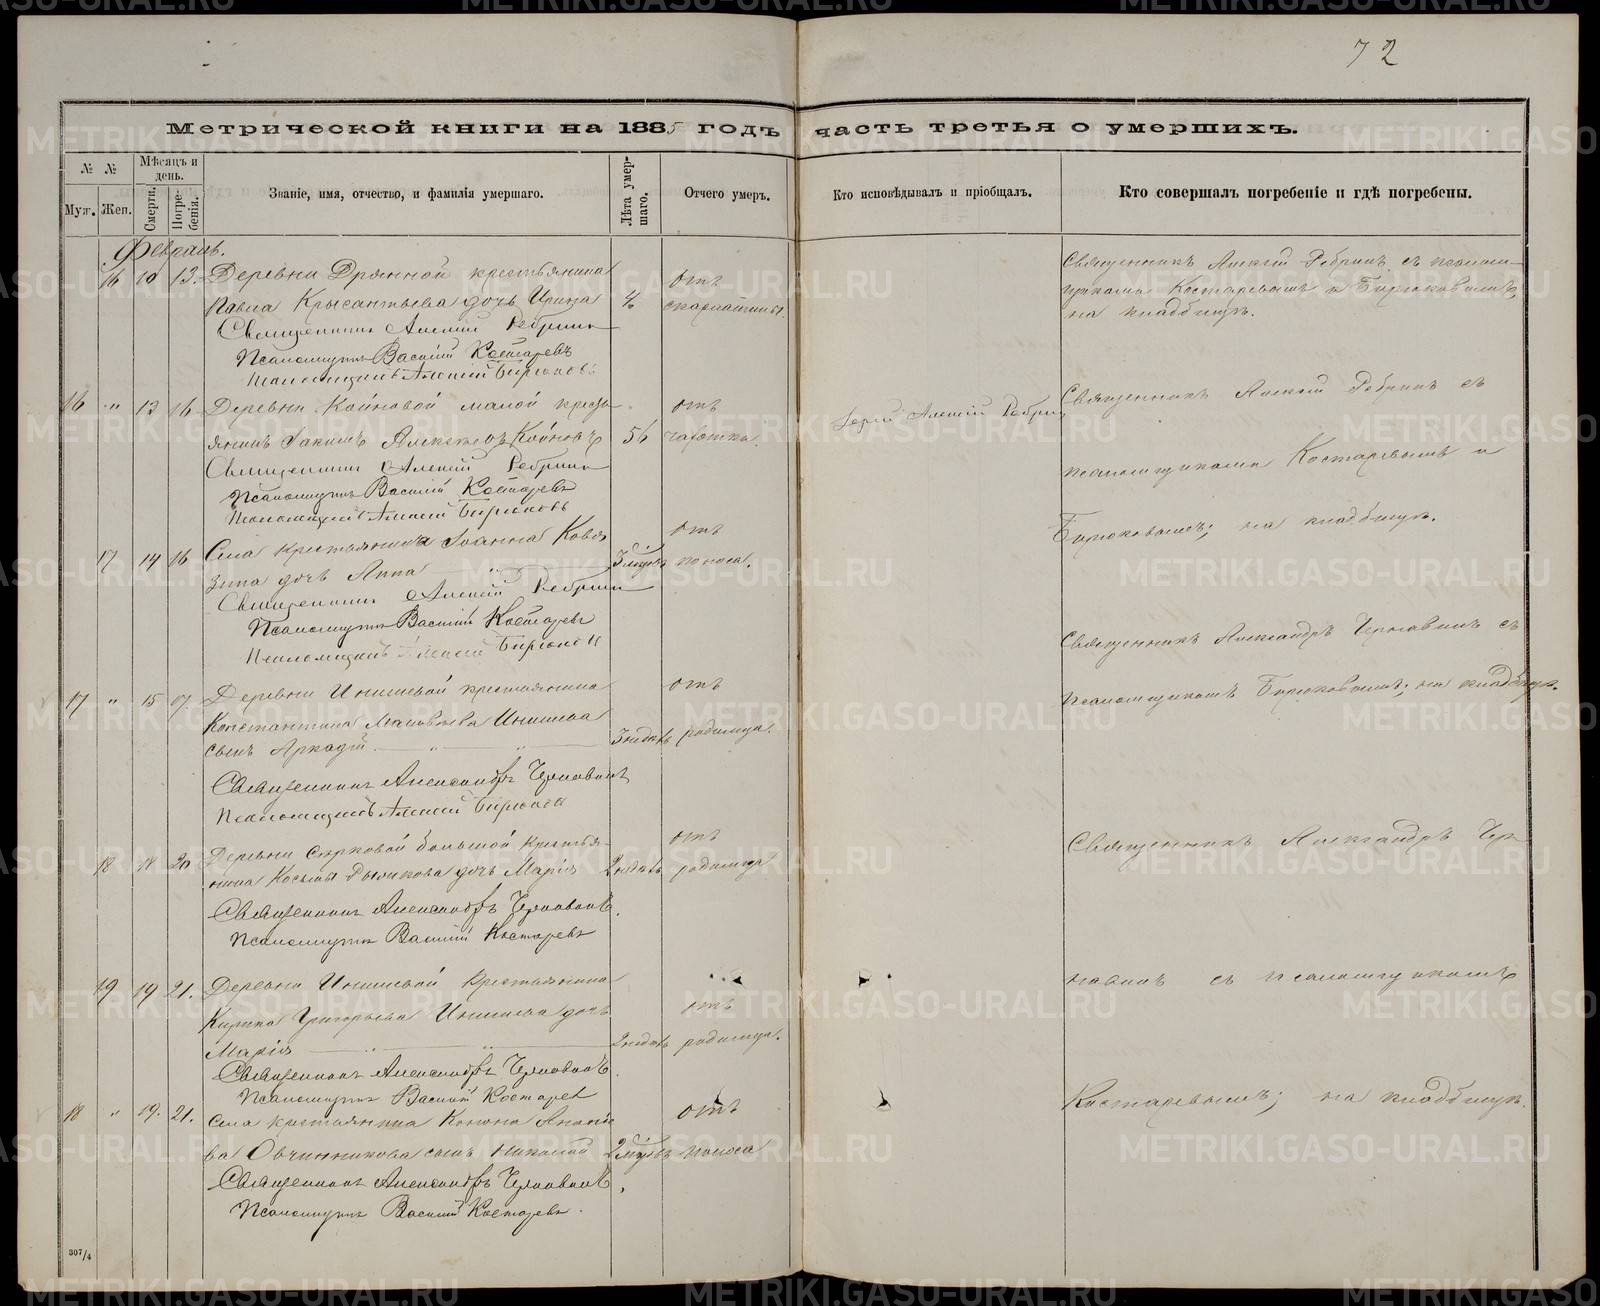 72
Метрической книги на 1885 годъ часть третья о умершихъ.
№ №
Мѣсяцъ и день.
Муж.
Жен.
Смерти.
Погребенія.
Званіе, имя, отчество, и фамилія умершаго.
Лѣта умершаго.
Отчего умеръ.
Кто исповѣдывалъ и пріобщалъ.
Кто совершалъ погребеніе и гдѣ погребены.
Февраль.
16 10 13. Деревни Дрянной крестьянина отъ
Павла Крысантьева дочь Ирина 4 скарлатины.
Священникъ Алексій Ребринъ
Псаломщикъ Василій Костаревъ
Псаломщикъ Алексій Бирюковъ
Священникъ Алексій Ребринъ съ псалом-
щиками Костаревымъ и Бирюковымъ,
на кладбищѣ.
16 " 13 16 Деревни Койновой малой кресть- отъ
янинъ Іакимъ Койновъ 56 чахотки.
Іерей Алексій Ребринъ
Священникъ Алексій Ребринъ съ
Священникъ Алексій Ребринъ
Псаломщикъ Василій Костаревъ
Псаломщикъ Алексій Бирюковъ
псаломщиками Костаревымъ и
Бирюковымъ; на кладбищѣ.
17 14 16 Села крестьянина Іоанна Ковя- отъ
зина дочь Анна 3 поноса.
Священникъ Алексій Ребринъ
Псаломщикъ Василій Костаревъ
Псаломщикъ Алексій Бирюковъ
Священникъ Александръ Чернавинъ съ
17 " 15 17. Деревни Инишевой крестьянина отъ
Константина Инишева
сынъ Аркадій 3 родимца.
псаломщикомъ Бирюковымъ; на кладбищѣ.
Священникъ Александръ Чернавинъ
Псаломщикъ Алексій Бирюковъ
Деревни большой крестья- отъ
18 18 20 нина Косьмы дочь Марія 2 родимца.
Священникъ Александръ Чернавинъ.
Псаломщикъ Василій Костаревъ
Священникъ Александръ Чер-
19 19 21. Деревни Инишевой крестьянина
Григорьева Инишева дочь отъ
Марія 2 родимца.
Священникъ Александръ Чернавинъ.
Псаломщикъ Василій Костаревъ
навинъ съ псаломщикомъ
18 " 19. 21. Села крестьянина Конона Анань- отъ
ва Овчинникова сынъ Николай 2 поноса
Священникъ Александръ Чернавинъ.
Псаломщикъ Василій Костаревъ.
Костаревымъ; на кладбищѣ.
307/4
METRIKI.GASO-URAL.RU